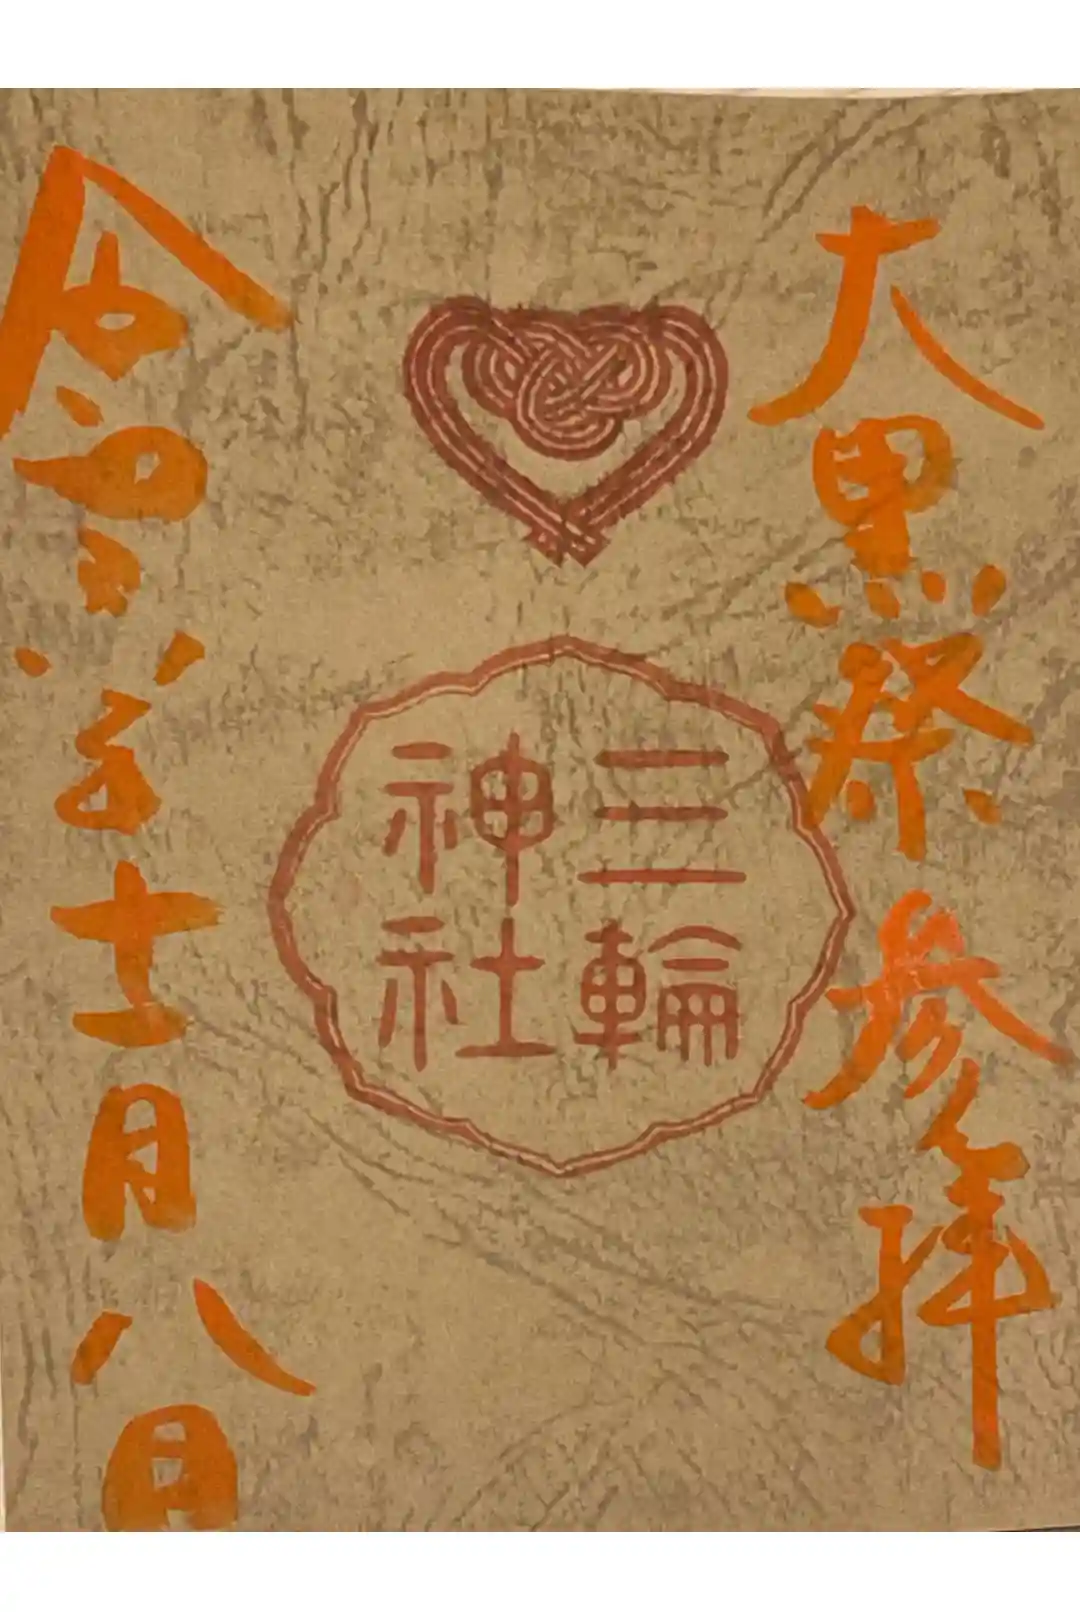 大黒祭 参拝
三輪
神社
令
年十一月八日